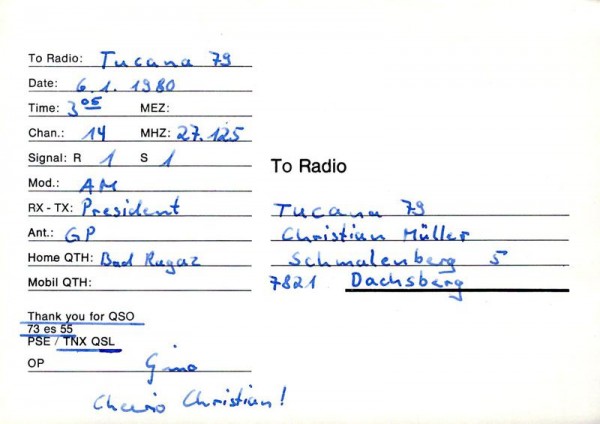 To Radio: Tucana 79
Date: 6.1.1980
Time: 3⁰⁵ MEZ:
Chan.: 14 MHZ: 27.125
Signal: R 1 S 1
Mod.: AM
RX - TX: President
Ant.: GP
Home QTH: Bad Ragaz
Mobil QTH:
Thank you for QSO
73 es 55
PSE / TNX QSL
OP Gino
Cheerio Christian!
To Radio
Tucana 79
Christian Müller
Schmalenberg 5
7821 Dachsberg